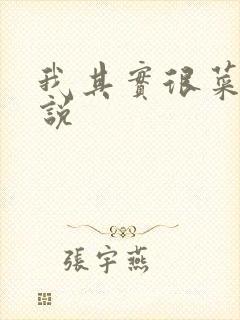 我其實很菜
說
張宇燕